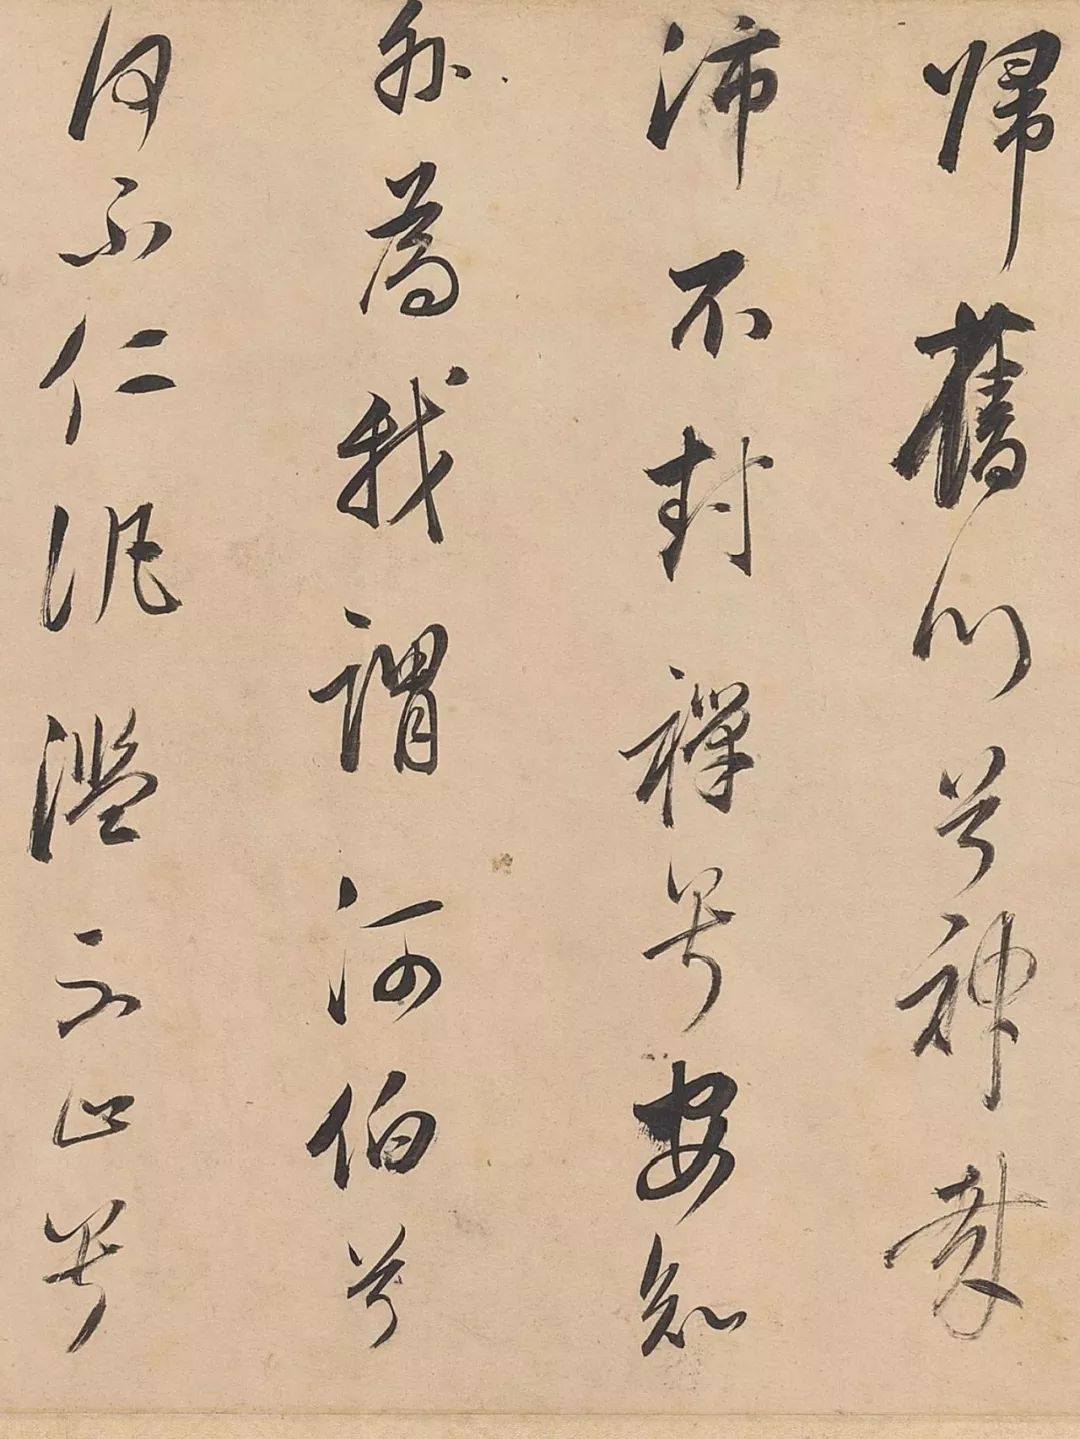 歸舊川兮神哉
沛不封禪兮安知
外為我謂河伯兮
何不仁汎濫不止兮